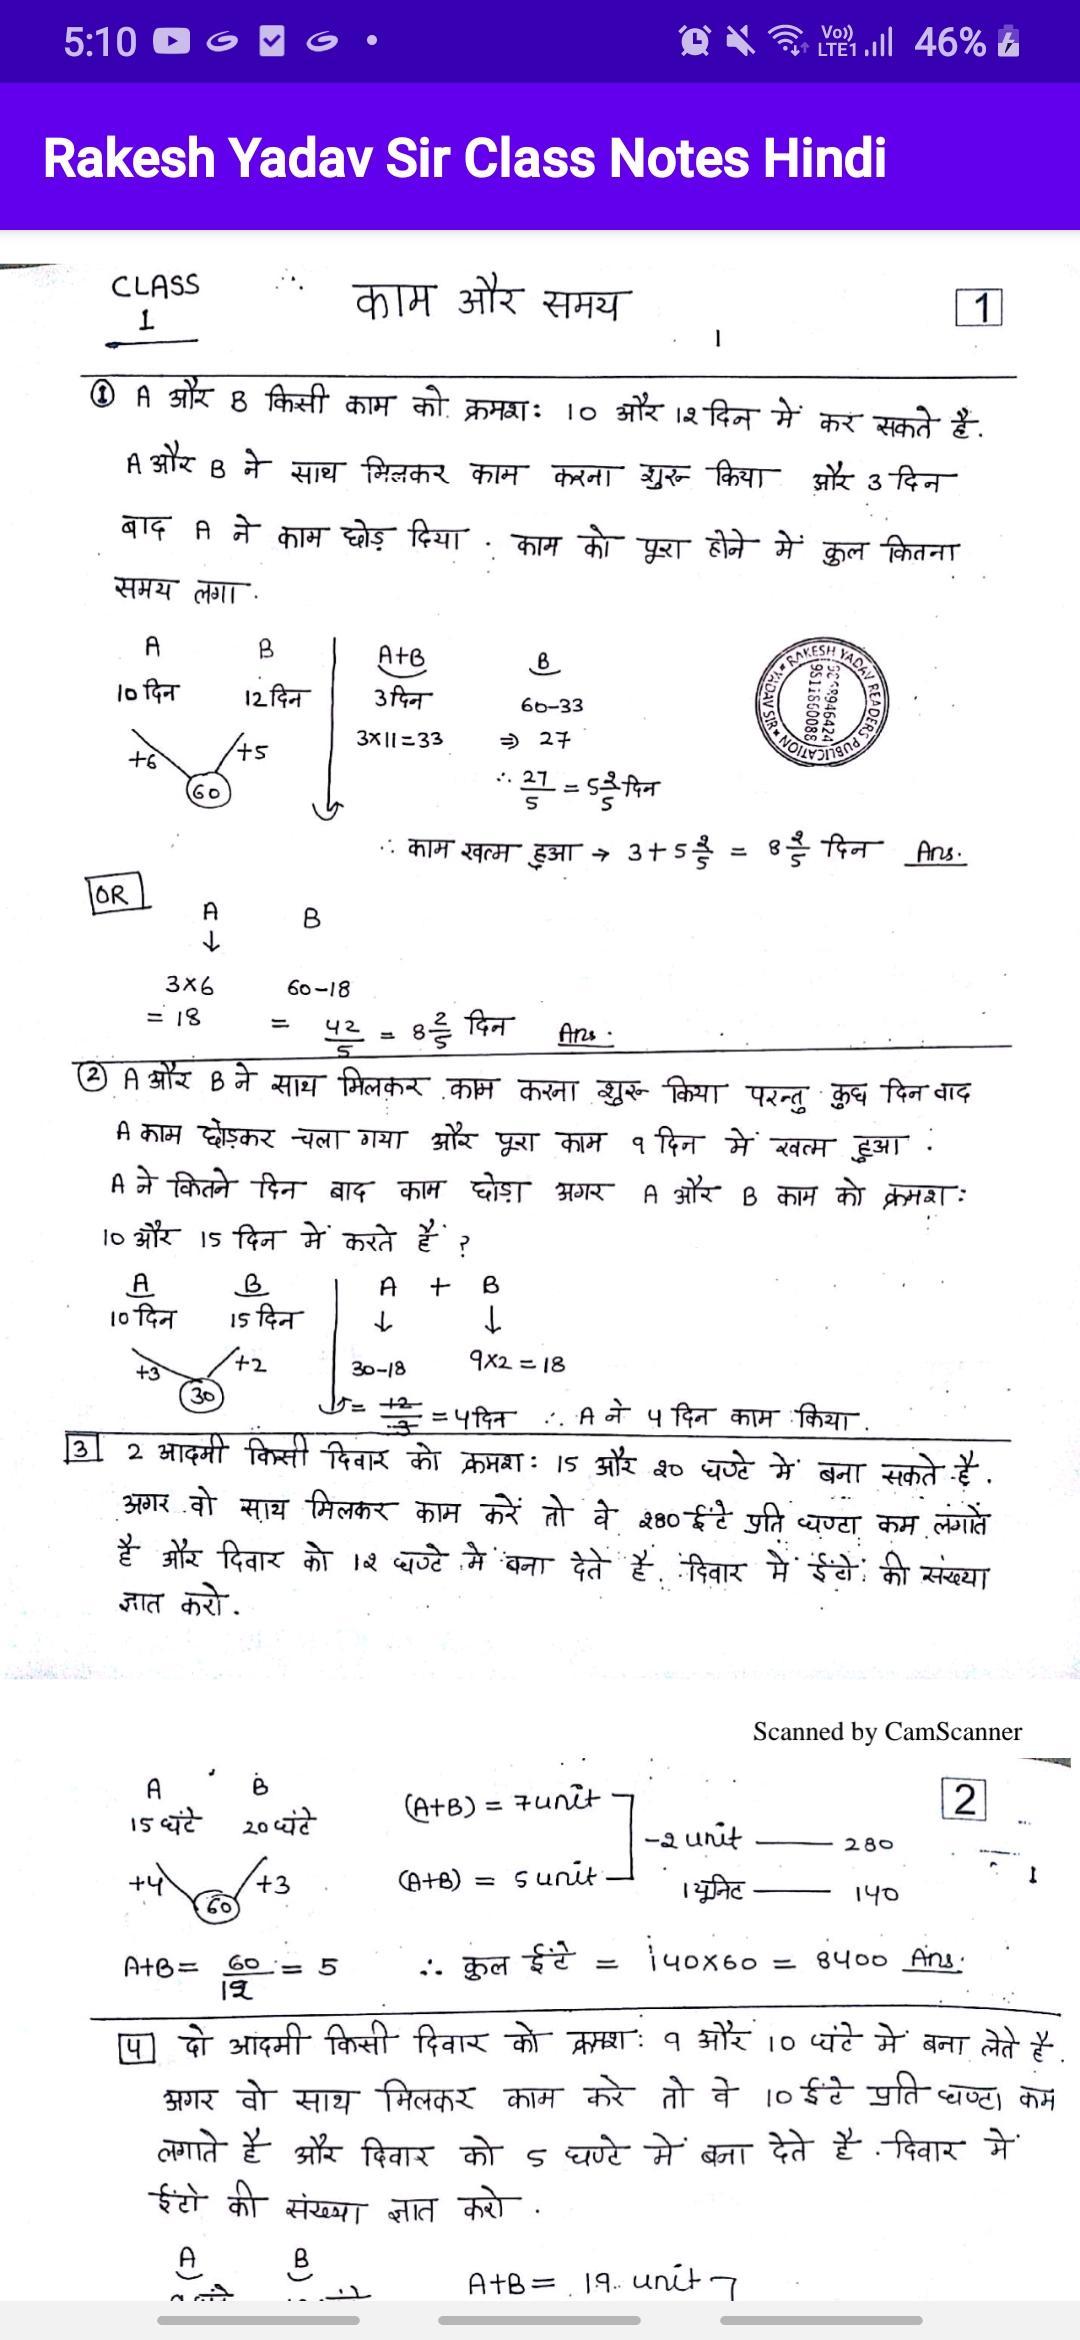 5:10
Vo)) LTE1 46%
Rakesh Yadav Sir Class Notes Hindi
CLASS 1
काम और समय
1
① A और B किसी काम को क्रमशः 10 और 12 दिन में कर सकते है.
A और B ने साथ मिलकर काम करना शुरू किया और 3 दिन
बाद A ने काम छोड़ दिया. काम को पूरा होने में कुल कितना
समय लगा.
A B A+B B
10 दिन 12 दिन 3 दिन 60-33
+6 +5 3×11=33 ⇒ 27
60 ∴ 27/5 = 5 2/5 दिन
∴ काम खत्म हुआ → 3+5 2/5 = 8 2/5 दिन Ans.
RAKESH YADAV READERS PUBLICATION YADAV SIR
OR
A B
↓
3×6 60-18
= 18 = 42/5 = 8 2/5 दिन Ans.
② A और B ने साथ मिलकर काम करना शुरू किया परन्तु कुछ दिन बाद
A काम छोड़कर चला गया और पूरा काम 9 दिन में खत्म हुआ.
A ने कितने दिन बाद काम छोड़ा अगर A और B काम को क्रमशः
10 और 15 दिन में करते हैं ?
A B A + B
10 दिन 15 दिन ↓ ↓
+3 +2 30-18 9×2=18
30 = 12/3 = 4 दिन ∴ A ने 4 दिन काम किया.
3 2 आदमी किसी दिवार को क्रमशः 15 और 20 घण्टे में बना सकते है.
अगर वो साथ मिलकर काम करें तो वे 280 ईंटे प्रति घण्टा कम लगाते
है और दिवार को 12 घण्टे में बना देते है. दिवार में ईंटो की संख्या
ज्ञात करो.
Scanned by CamScanner
2
A B (A+B) = 7 unit
15 घंटे 20 घंटे -2 unit — 280
+4 +3 (A+B) = 5 unit 1 यूनिट — 140
60
A+B = 60/12 = 5 ∴ कुल ईंटे = 140×60 = 8400 Ans.
4 दो आदमी किसी दिवार को क्रमशः 9 और 10 घंटे में बना लेते है.
अगर वो साथ मिलकर काम करे तो वे 10 ईंटे प्रति घण्टा कम
लगाते है और दिवार को 5 घण्टे में बना देते है. दिवार में
ईंटो की संख्या ज्ञात करो.
A B
A+B = 19 unit